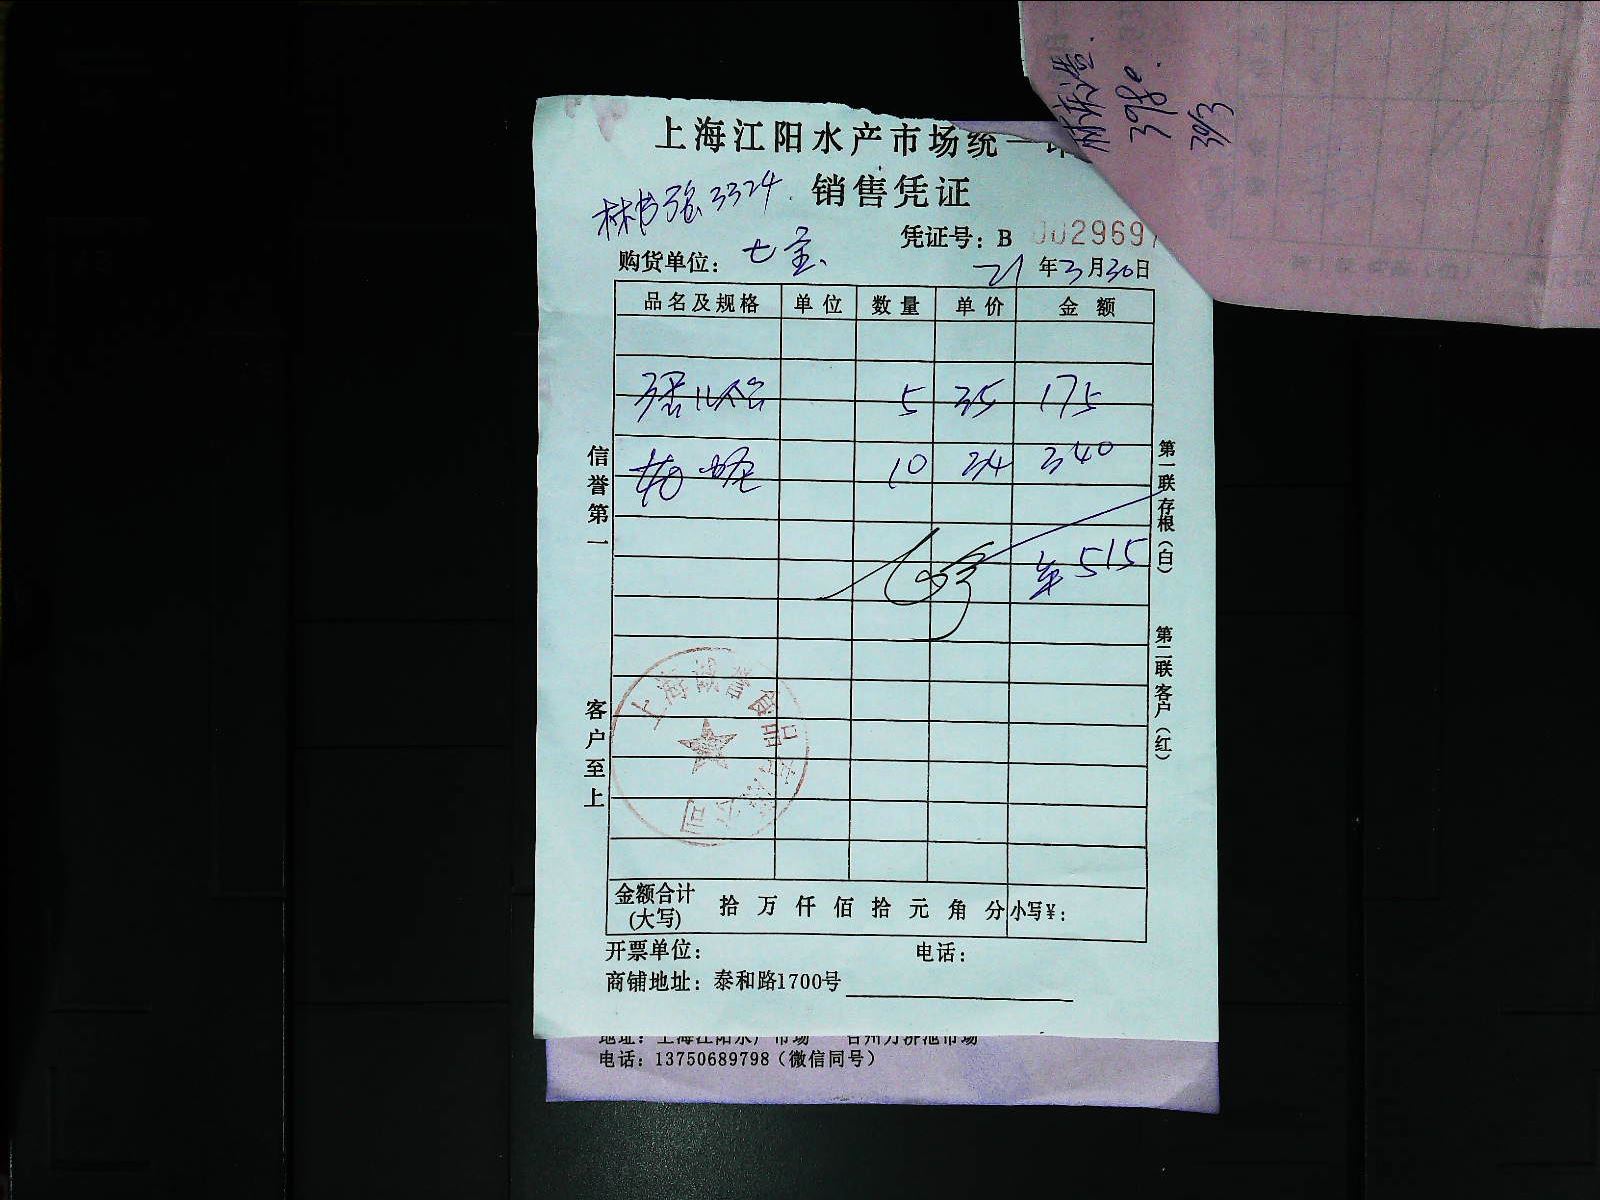 上海江阳水产市场统一
3324
销售凭证
凭证号：B 002969
购货单位：七宝
21年3月30日
品名及规格 单位 数量 单价 金额
5 35 175
10 34 340
515
信誉第一
客户至上
第一联存根（白）
第二联客户（红）
上海 食品 公司
金额合计(大写) 拾万仟佰拾元角分 小写¥：
开票单位： 电话：
商铺地址：泰和路1700号
地址：上海江阳水产市场 台州万济池市场
电话：13750689798（微信同号）
3980.